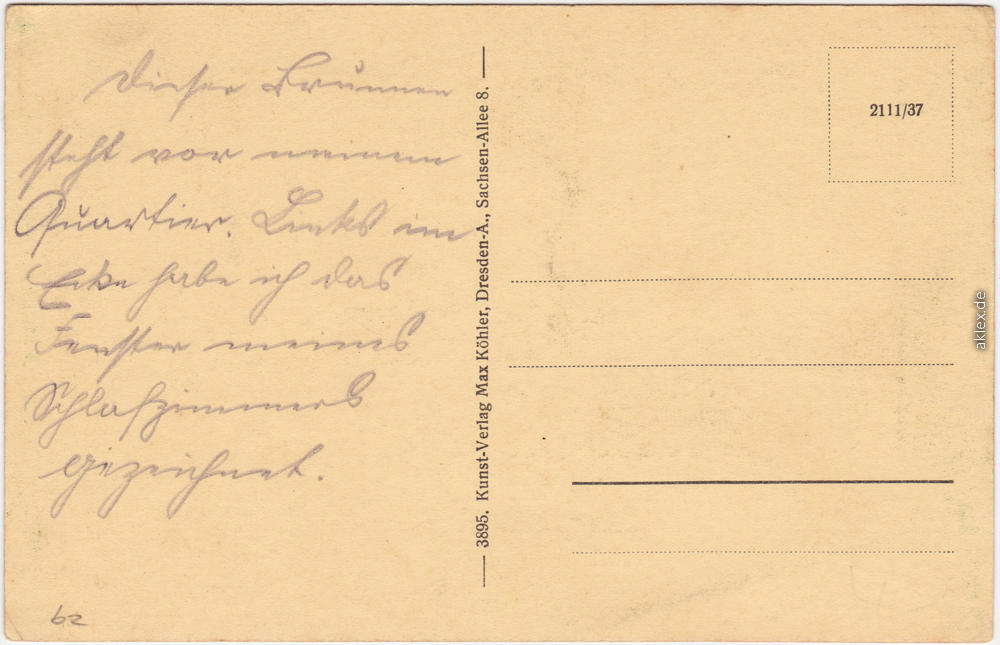 Dieser Brunnen
steht vor meinem
Quartier. Links im
Ecke habe ich das
Fenster meines
Schlafzimmers
gezeichnet.
3895. Kunst-Verlag Max Köhler, Dresden-A., Sachsen-Allee 8.
2111/37
aklex.de